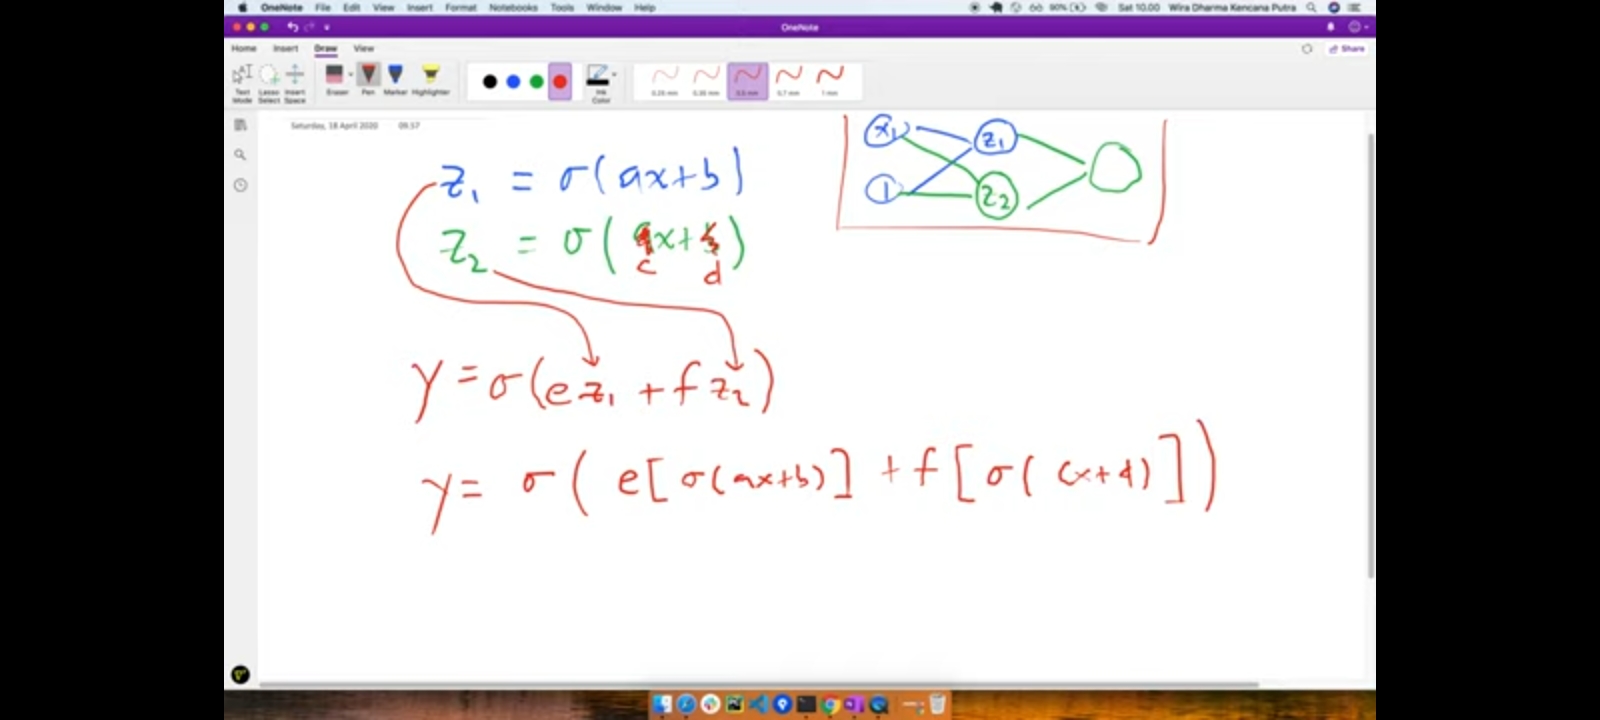 OneNote File Edit View Insert Format Notebooks Tools Window Help 90% Sat 10.00 Wira Dharma Kencana Putra
OneNote
Home Insert Draw View Share
Text Mode Lasso Select Insert Space Eraser Pen Marker Highlighter Ink Color 0.25 mm 0.35 mm 0.5 mm 0.7 mm 1 mm
Saturday, 18 April 2020 09.57
x₁ z₁
1 z₂
z₁ = σ(ax+b)
z₂ = σ( x+ )
c d
y = σ(ez₁ + fz₂)
y = σ( e[σ(ax+b)] + f[σ(cx+d)])